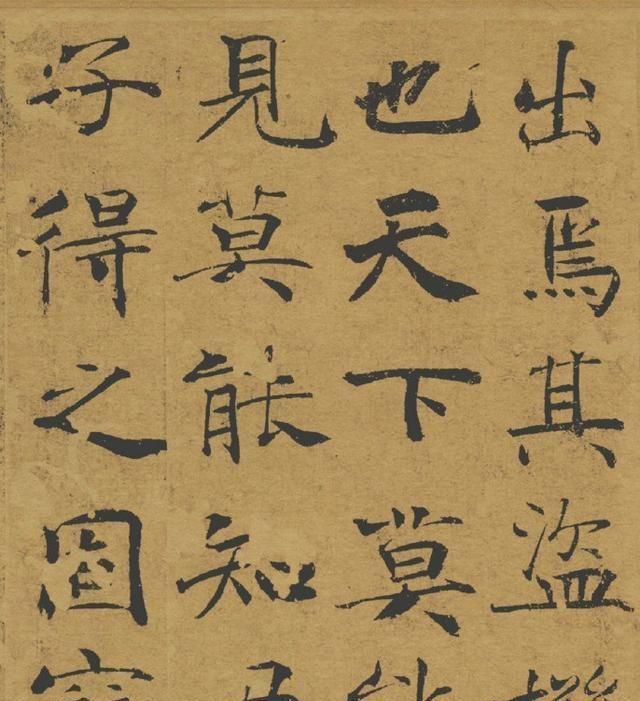 出焉其盜
也天下莫
見莫能知
子得之固